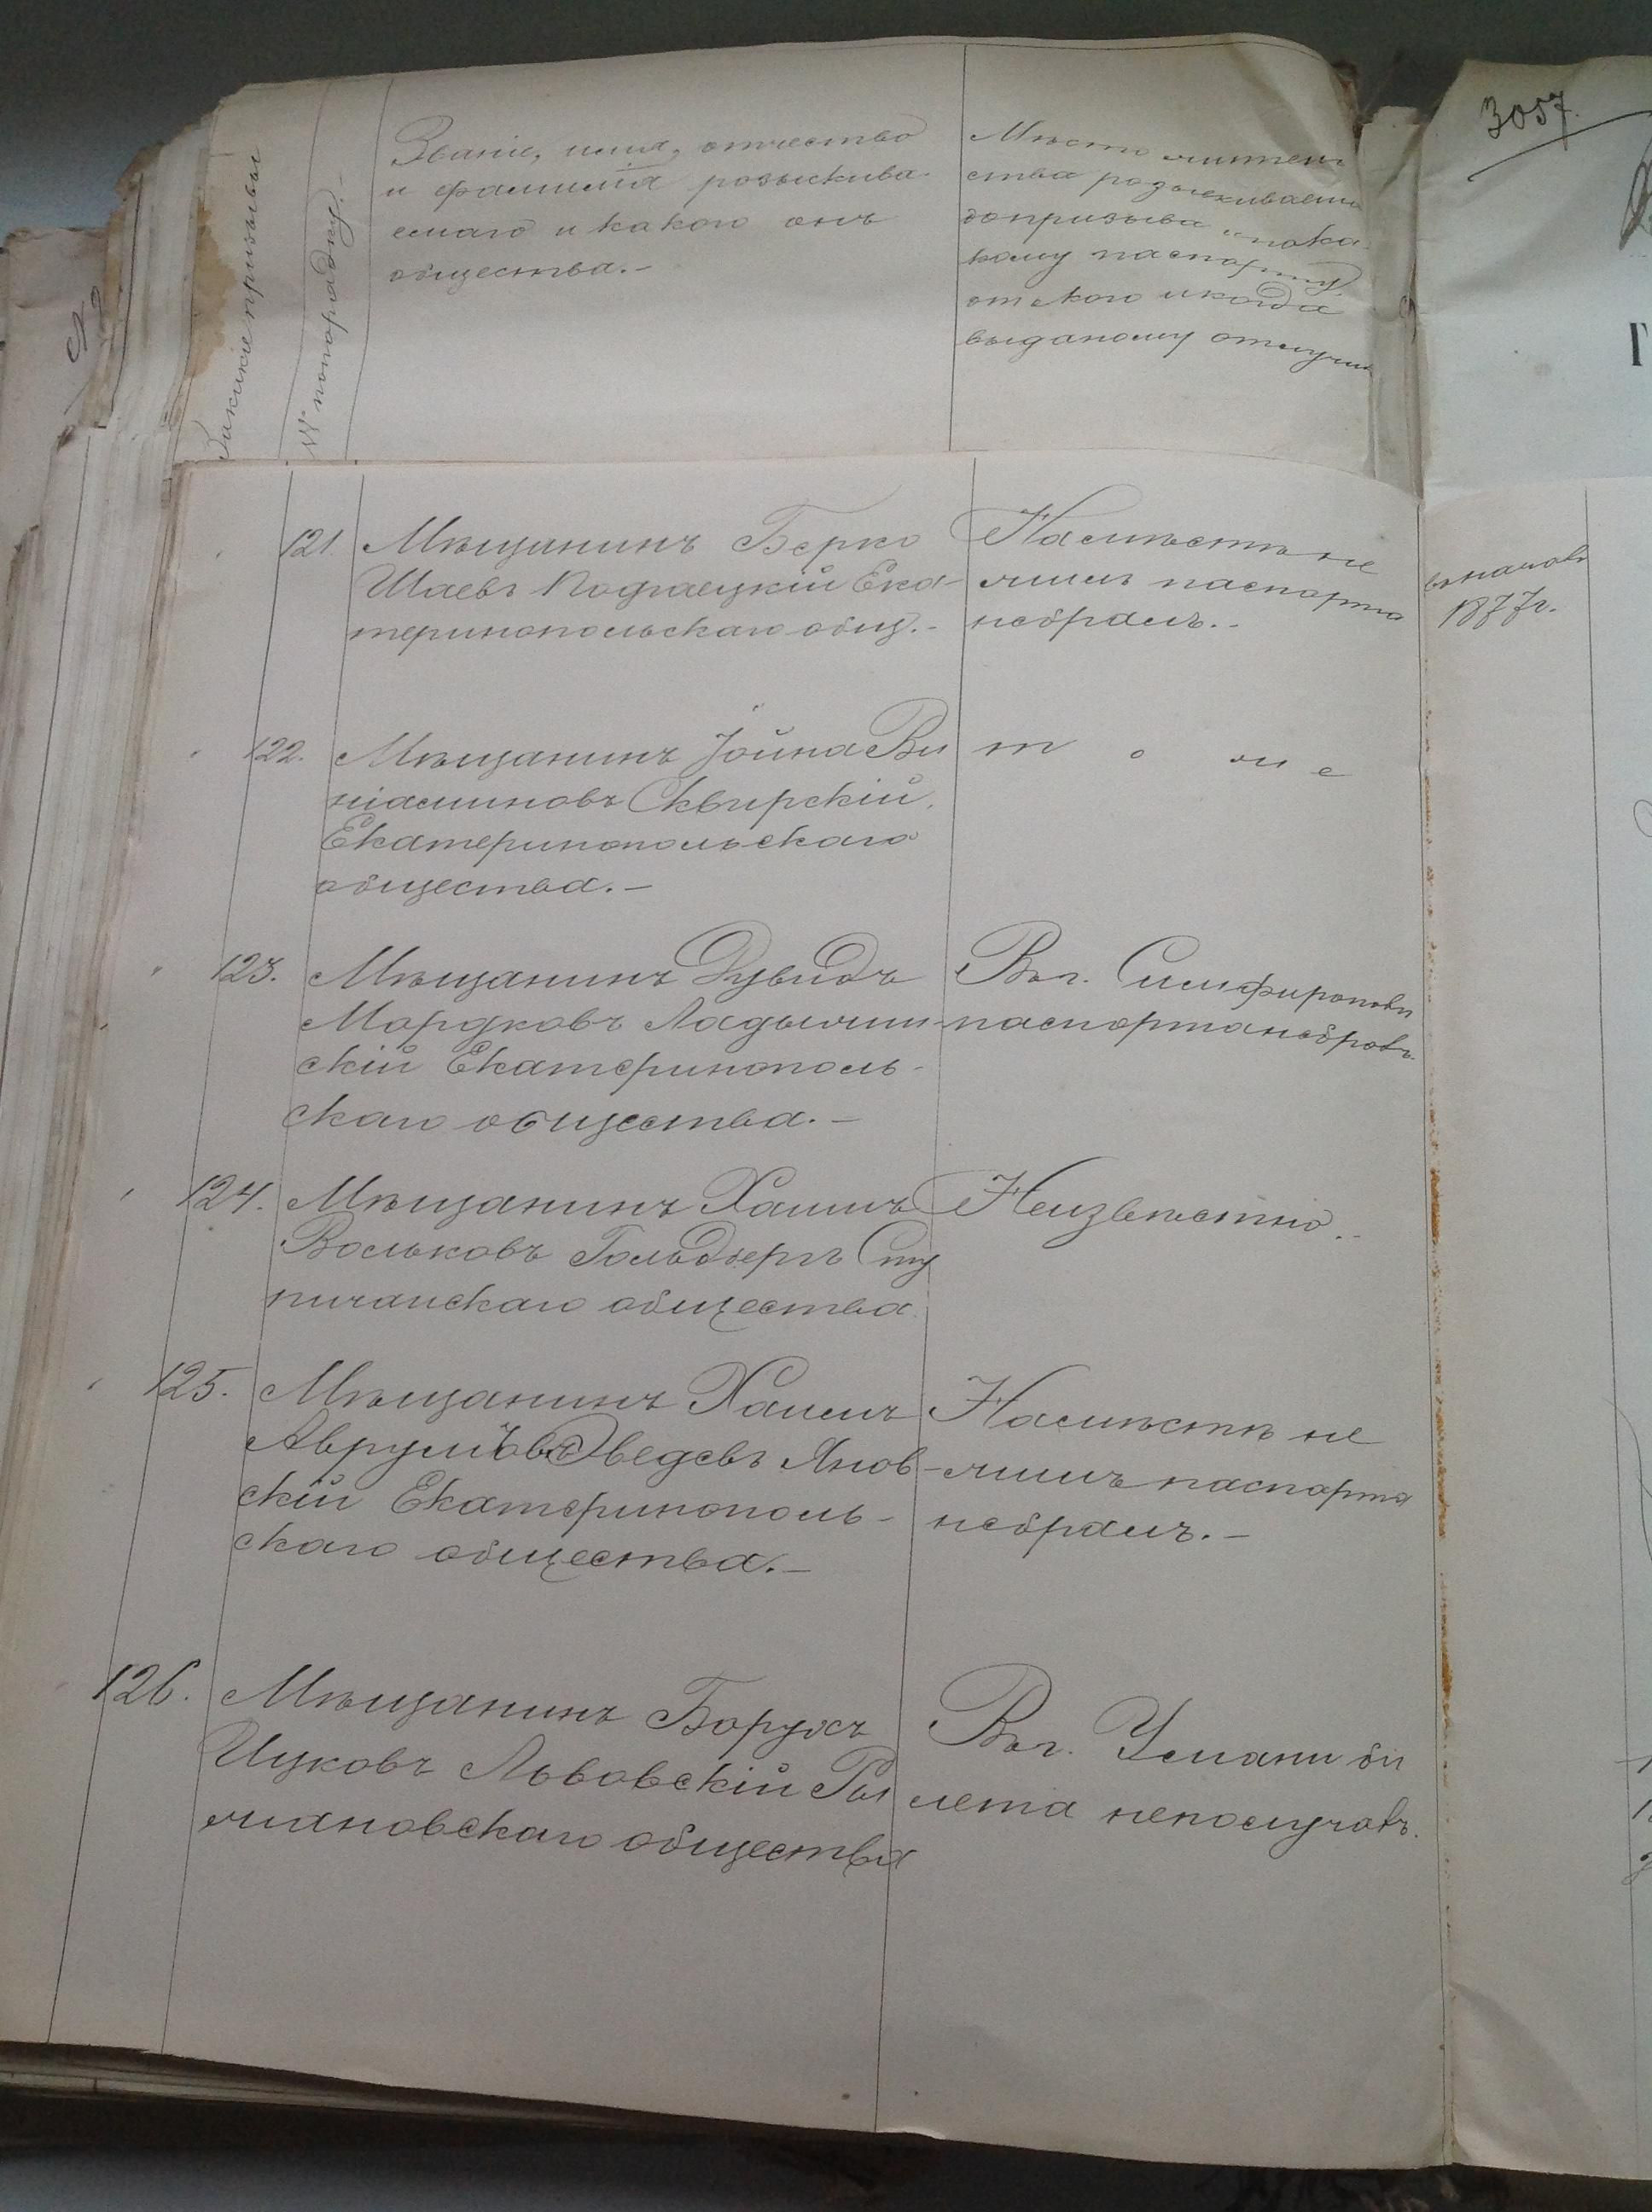 3057.
За какіе призывы
№ по порядку.
Званіе, имя, отчество
и фамилія розыскива-
емаго и какого онъ
общества.-
Мѣсто житель
ства розыскиваемаго
до призыва и по ка-
кому паспорту,
отъ кого и когда
выданому отлучил
121. Мѣщанинъ Берко
Шаевъ Подгаецкій Ека-
теринопольскаго общ.-
На мѣстѣ не
жилъ паспорта
небралъ.-
въ началѣ
1877 г.
122. Мѣщанинъ Іойна Ви
ніаминовъ Сквирскій,
Екатеринопольскаго
общества.-
т о ж е
123. Мѣщанинъ Дувидъ
Мордковъ Ладыжин-
скій Екатеринополь-
скаго общества.-
Въ г. Симфирополѣ
паспорта небралъ.
124. Мѣщанинъ Хаимъ
Вольковъ Гольдбергъ
общества
Неизвѣстно.-
125. Мѣщанинъ Хаимъ
Аврумъ Янов-
скій Екатеринополь-
скаго общества.-
На мѣстѣ не
жилъ паспорта
небралъ.-
126. Мѣщанинъ Борухъ
Ицковъ Львовскій Ры
жановскаго общества
Въ г. Умани би
лета неполучалъ.
Г